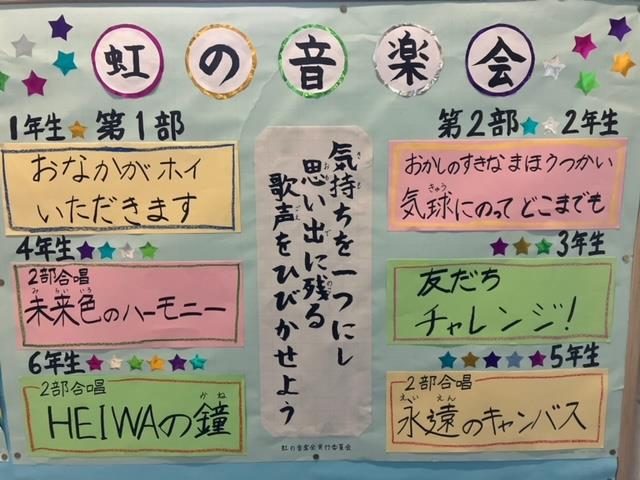 虹の音楽会
1年生 第1部
おなかがホイ
いただきます
4年生
2部合唱
未来色のハーモニー
みらいいろ
6年生
2部合唱
HEIWAの鐘
かね
気持ちを一つにし
きも
思い出に残る
おもでのこ
歌声をひびかせよう
うたごえ
虹の音楽会実行委員会
第2部 2年生
おかしのすきなまほうつかい
気球にのってどこまでも
ききゅう
3年生
友だち
チャレンジ!
5年生
2部合唱
永遠のキャンバス
えいえん